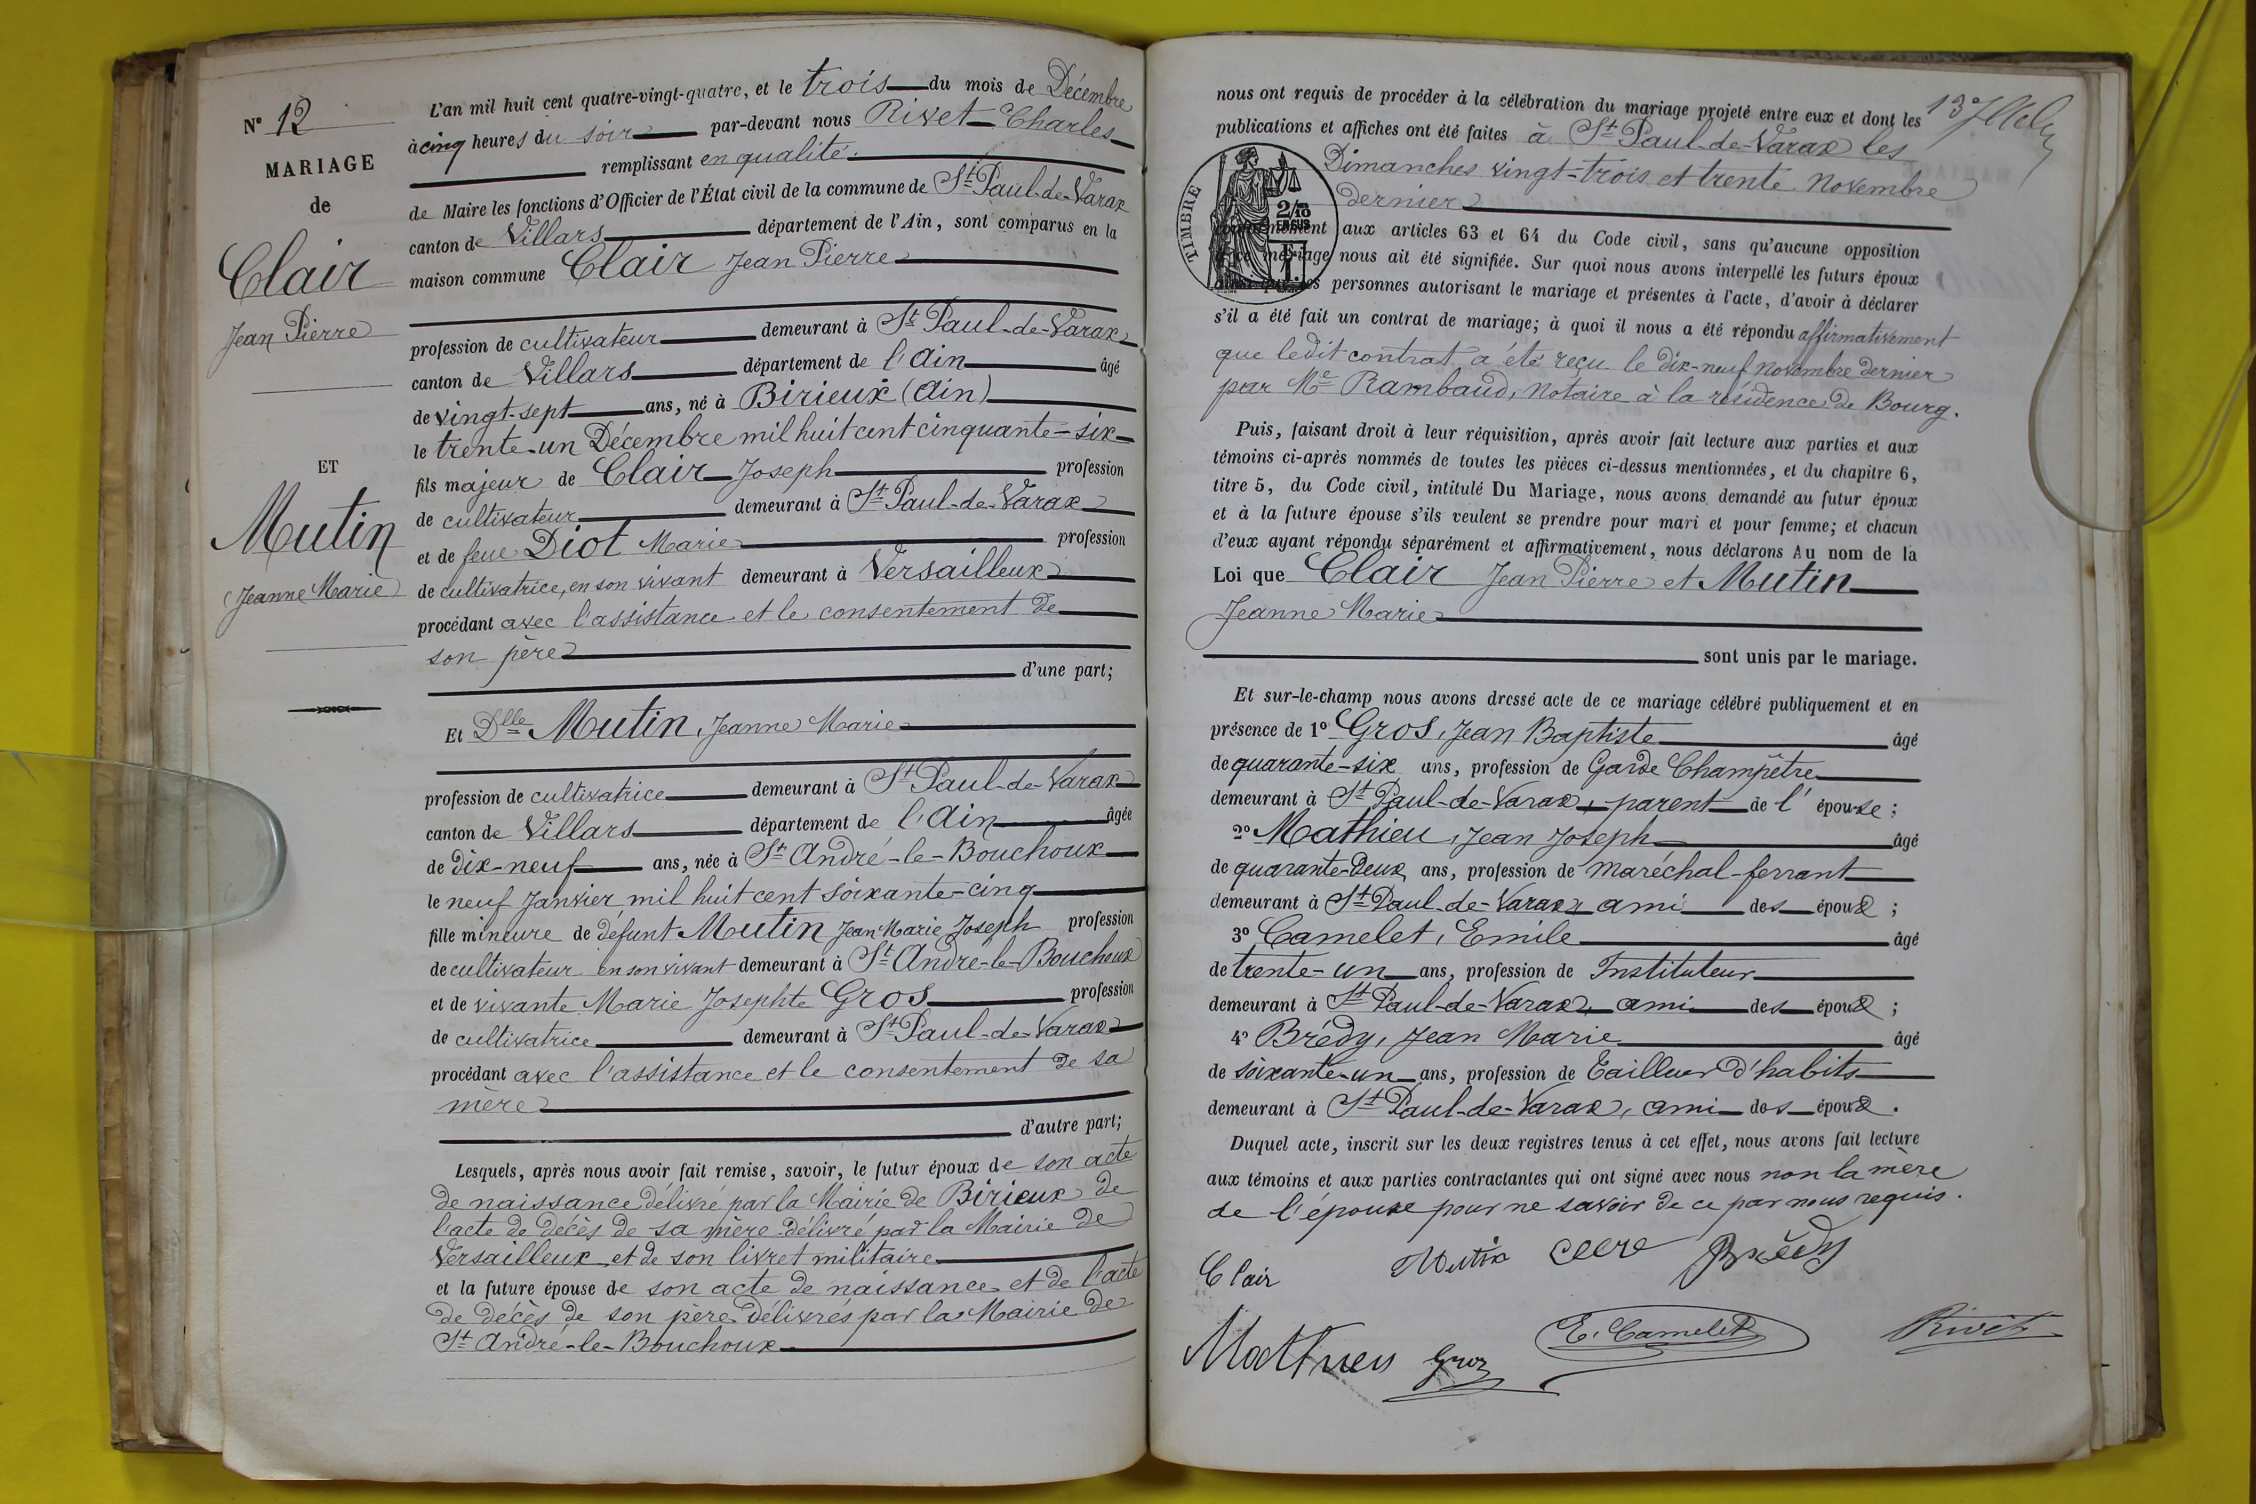 N° 12
MARIAGE
de
Clair
Jean Pierre
ET
Mutin
Jeanne Marie
L'an mil huit cent quatre-vingt-quatre, et le trois du mois de Décembre
à cinq heures du soir par-devant nous Rivet Charles
remplissant en qualité
de Maire les fonctions d'Officier de l'État civil de la commune de St Paul-de-Varax
canton de Villars département de l'Ain, sont comparus en la
maison commune Clair Jean Pierre
profession de cultivateur demeurant à St Paul-de-Varax
canton de Villars département de l'Ain âgé
de vingt-sept ans, né à Birieux (Ain)
le trente-un Décembre mil huit cent cinquante-six
fils majeur de Clair Joseph profession
de cultivateur demeurant à St Paul-de-Varax
et de feue Diot Marie profession
de cultivatrice, en son vivant demeurant à Versailleux
procédant avec l'assistance et le consentement de
son père
d'une part;
Et Dlle Mutin, Jeanne Marie
profession de cultivatrice demeurant à St Paul-de-Varax
canton de Villars département de l'Ain âgée
de dix-neuf ans, née à St André-le-Bouchoux
le neuf Janvier mil huit cent soixante-cinq
fille mineure de défunt Mutin Jean Marie Joseph profession
de cultivateur en son vivant demeurant à St André-le-Boucheux
et de vivante Marie Josephte Gros profession
de cultivatrice demeurant à St Paul-de-Varax
procédant avec l'assistance et le consentement de sa
mère
d'autre part;
Lesquels, après nous avoir fait remise, savoir, le futur époux de son acte
de naissance délivré par la Mairie de Birieux de
l'acte de décès de sa mère délivré par la Mairie de
Versailleux et de son livret militaire
et la future épouse de son acte de naissance et de l'acte
de décès de son père délivrés par la Mairie de
St André-le-Bouchoux
nous ont requis de procéder à la célébration du mariage projeté entre eux et dont les
publications et affiches ont été faites à St Paul-de-Varax les
Dimanches vingt-trois et trente Novembre
dernier
TIMBRE
2/10
EN SUS
conformément aux articles 63 et 64 du Code civil, sans qu'aucune opposition
à ce mariage nous ait été signifiée. Sur quoi nous avons interpellé les futurs époux
personnes autorisant le mariage et présentes à l'acte, d'avoir à déclarer
s'il a été fait un contrat de mariage; à quoi il nous a été répondu affirmativement
que ledit contrat a été reçu le dix-neuf novembre dernier
par Me Rambaud, Notaire à la résidence de Bourg.
Puis, faisant droit à leur réquisition, après avoir fait lecture aux parties et aux
témoins ci-après nommés de toutes les pièces ci-dessus mentionnées, et du chapitre 6,
titre 5, du Code civil, intitulé Du Mariage, nous avons demandé au futur époux
et à la future épouse s'ils veulent se prendre pour mari et pour femme; et chacun
d'eux ayant répondu séparément et affirmativement, nous déclarons Au nom de la
Loi que Clair Jean Pierre et Mutin
Jeanne Marie
sont unis par le mariage.
Et sur-le-champ nous avons dressé acte de ce mariage célébré publiquement et en
présence de 1° Gros, Jean Baptiste âgé
de quarante-six ans, profession de Garde Champêtre
demeurant à St Paul-de-Varax, parent de l'épouse;
2° Mathieu, Jean Joseph âgé
de quarante-deux ans, profession de maréchal-ferrant
demeurant à St Paul-de-Varax, ami des époux;
3° Camelet, Emile âgé
de trente-un ans, profession de Instituteur
demeurant à St Paul-de-Varax, ami des époux;
4° Brédy, Jean Marie âgé
de soixante-un ans, profession de Tailleur d'habits
demeurant à St Paul-de-Varax, ami des époux.
Duquel acte, inscrit sur les deux registres tenus à cet effet, nous avons fait lecture
aux témoins et aux parties contractantes qui ont signé avec nous non la mère
de l'épouse pour ne savoir de ce par nous requis.
Clair Mutin Brédy
Mathieu Gros E. Camelet Rivet